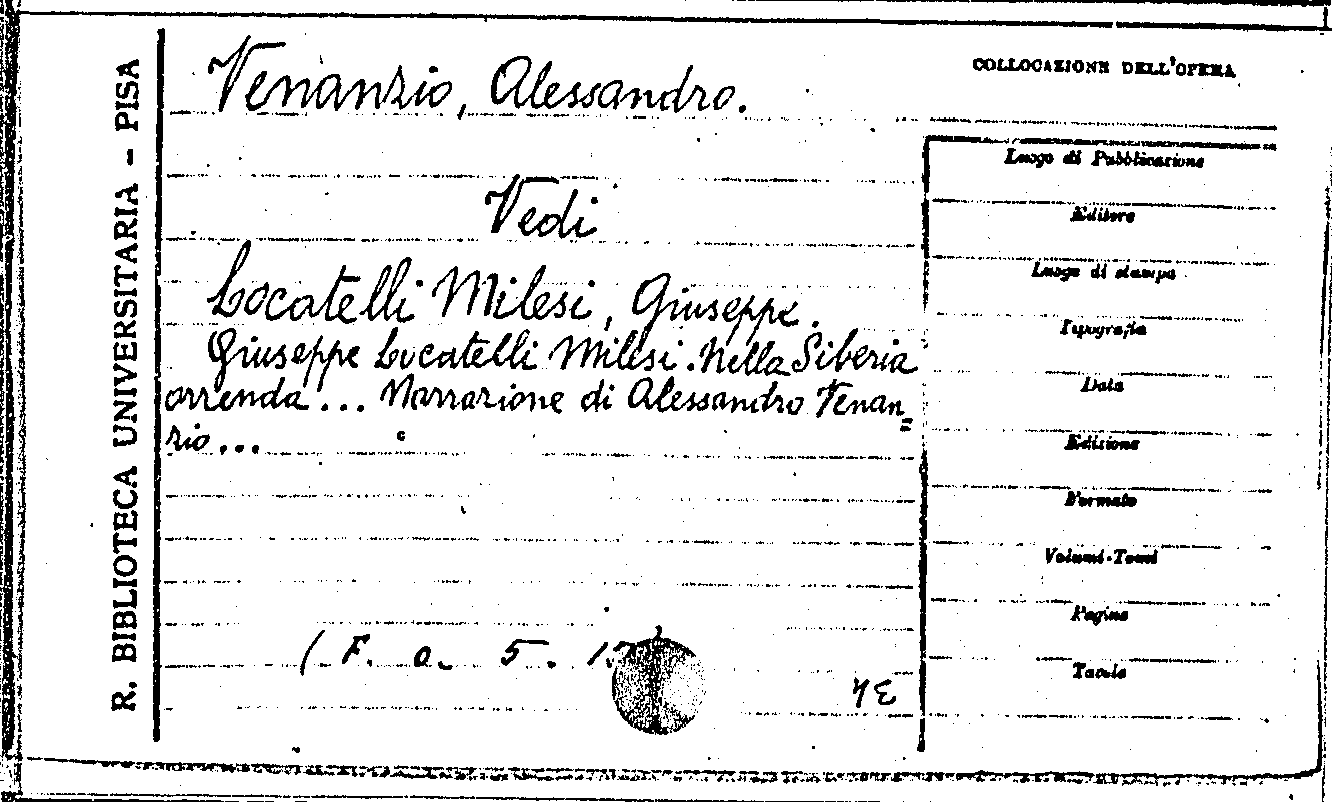 R. BIBLIOTECA UNIVERSITARIA - PISA
Venanzio, Alessandro.
Vedi
Locatelli Milesi, Giuseppe.
Giuseppe Locatelli Milesi. Nella Siberia
orrenda... Narrazione di Alessandro Venan=
zio...
( F. a. 5.
COLLOCAZIONE DELL'OPERA
Luogo di Pubblicazione
Editore
Luogo di stampa
Tipografia
Data
Edizione
Formato
Volumi-Tomi
Pagine
Tavole